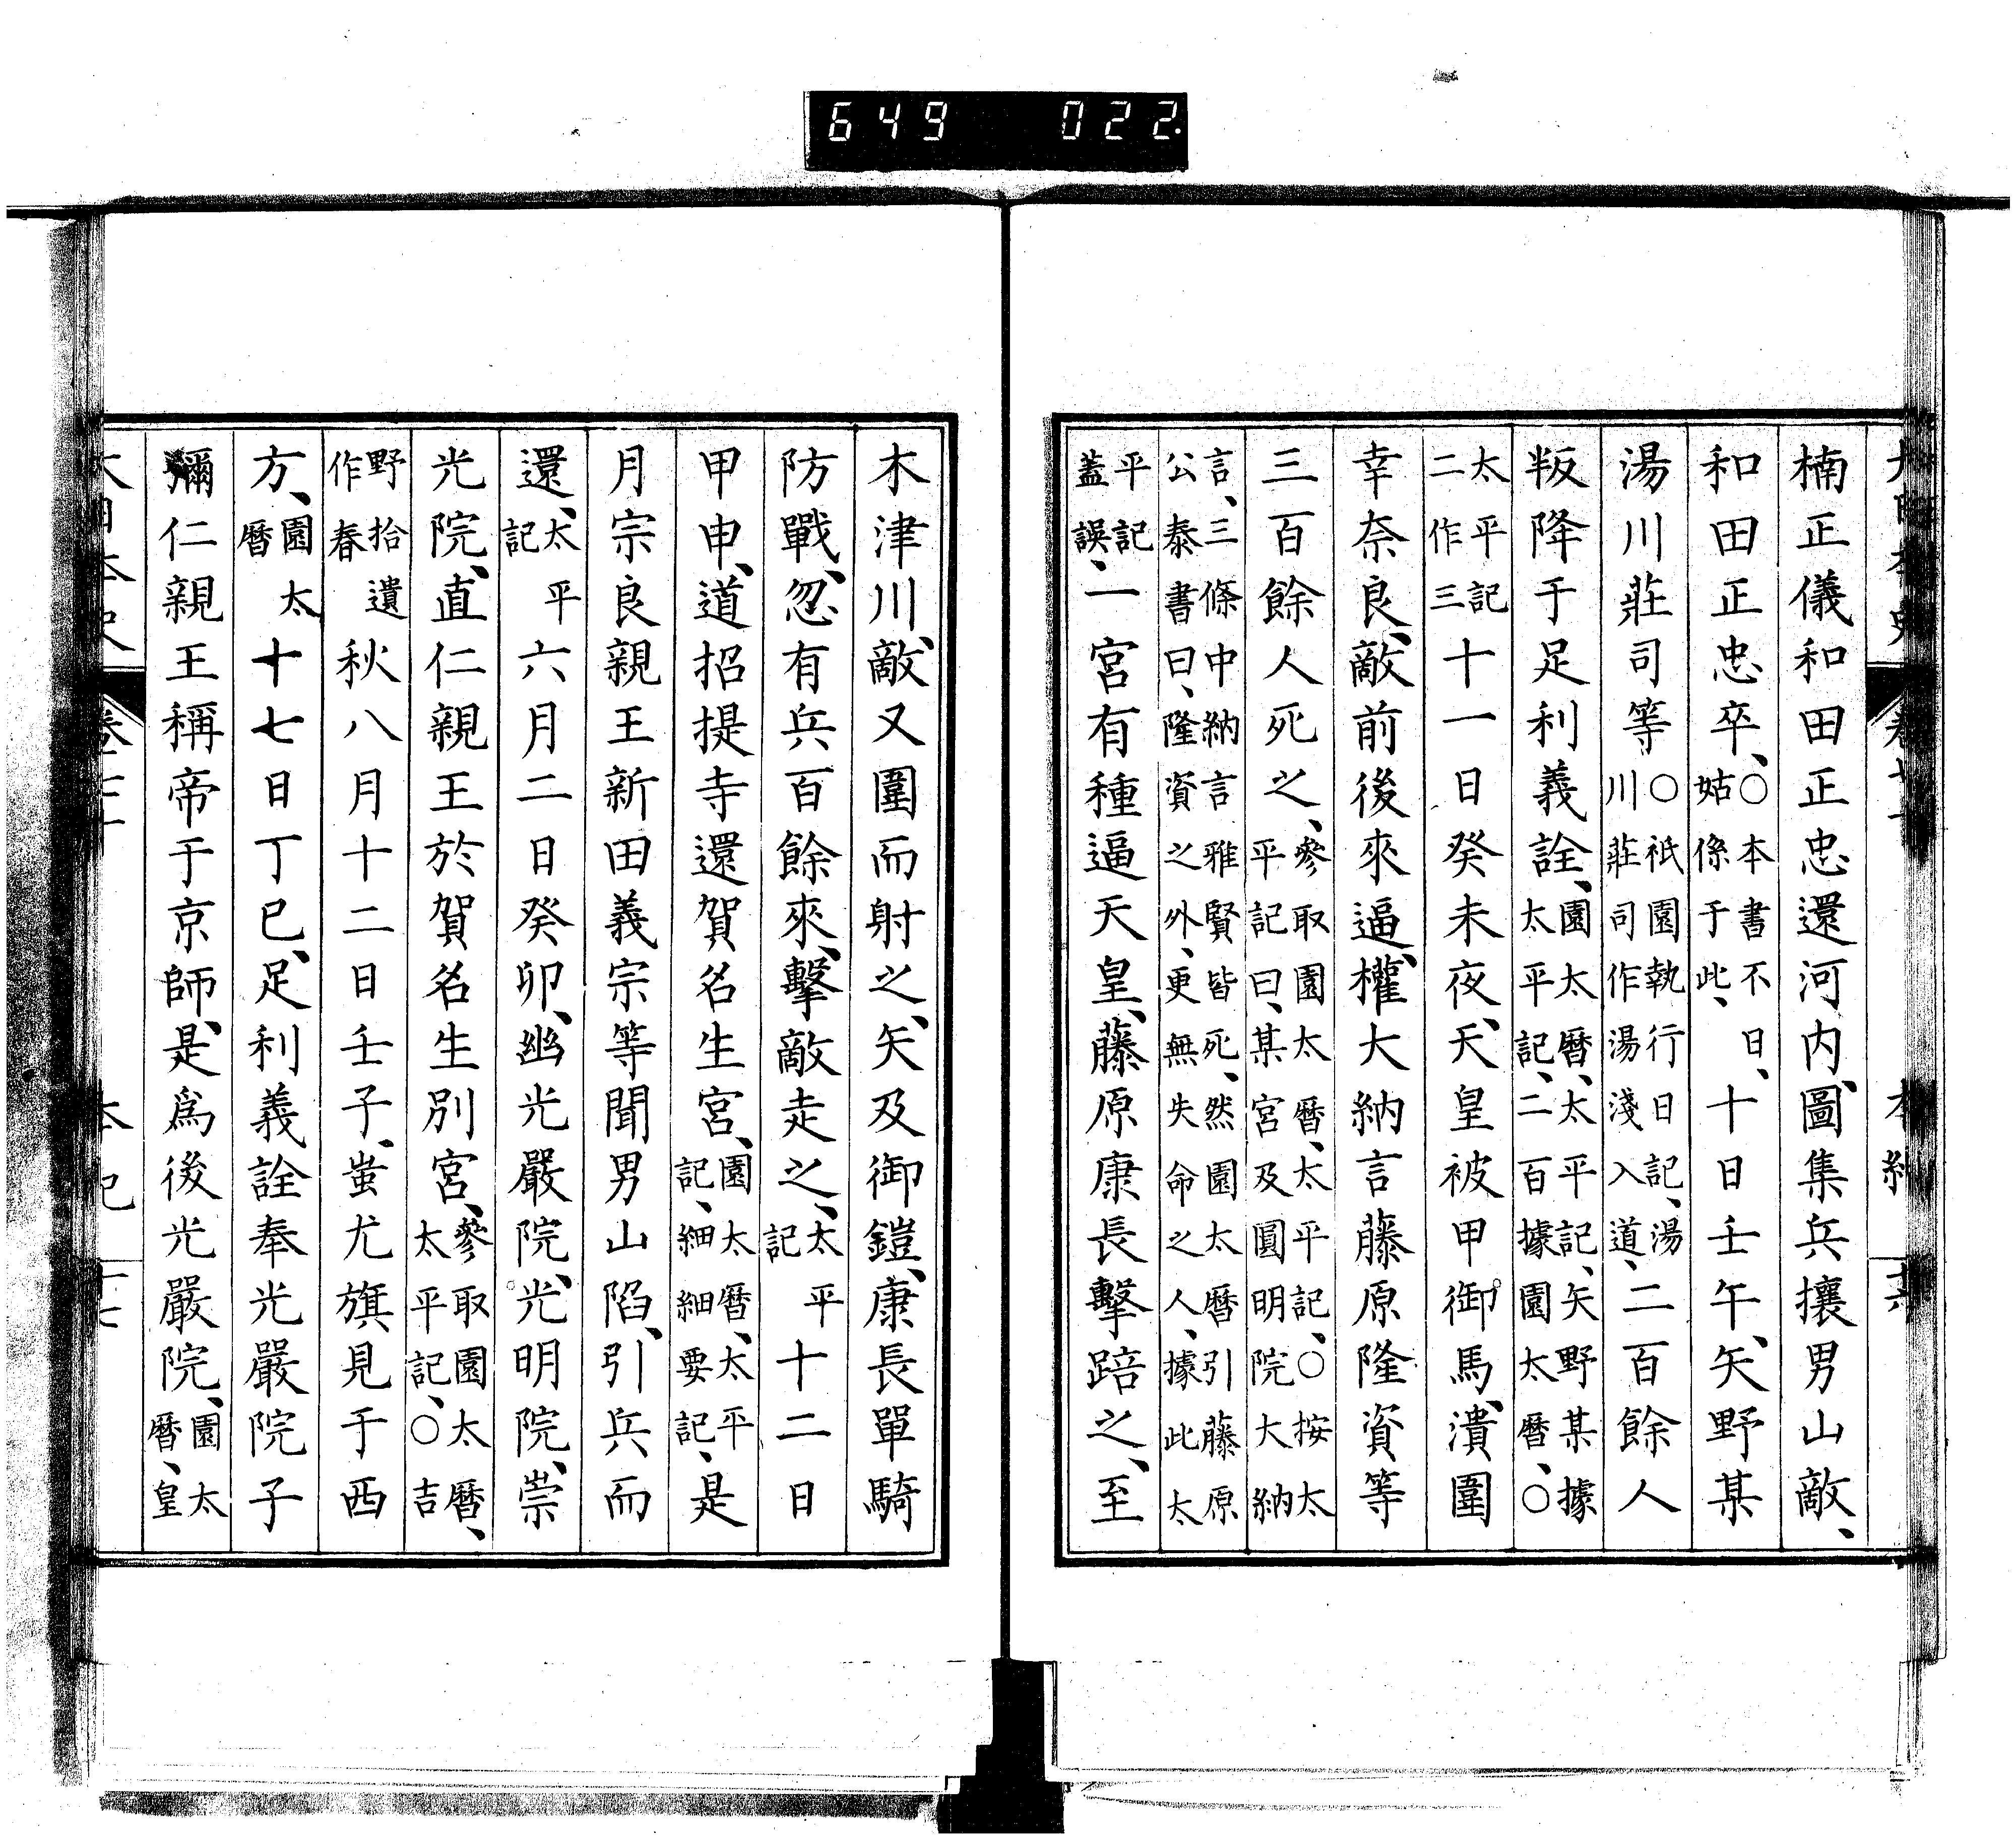 649 022
楠正儀和田正忠還河内、圖集兵攘男山敵、
和田正忠卒、○本書不日、姑係于此、十日壬午、矢野某
湯川莊司等○祇園執行日記、湯川莊司作湯淺入道、二百餘人
叛降于足利義詮、園太曆、太平記、矢野某據太平記、二百據園太曆、○
太平記二作三十一日癸未夜、天皇被甲御馬、潰圍
幸奈良、敵前後來逼、權大納言藤原隆資等
三百餘人死之、參取園太曆、太平記、○按太平記曰、某宮及圓明院大納
言、三條中納言雅賢皆死、然園太曆引藤原公泰書曰、隆資之外、更無失命之人、據此太
平記蓋誤、一宮有種逼天皇、藤原康長擊踣之、至
木津川、敵又圍而射之、矢及御鎧、康長單騎
防戰、忽有兵百餘來、擊敵走之、太平記十二日
甲申、道招提寺還賀名生宮、園太曆、太平記、細細要記、是
月宗良親王新田義宗等聞男山陷、引兵而
還、太平記六月二日癸卯、幽光嚴院、光明院、崇
光院、直仁親王於賀名生別宮、參取園太曆、太平記、○吉
野拾遺作春秋八月十二日壬子、蚩尤旗見于西
方、園太曆十七日丁巳、足利義詮奉光嚴院子
彌仁親王稱帝于京師、是爲後光嚴院、園太曆、皇
本紀